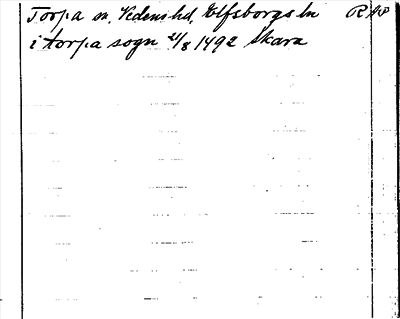 Torpa sn, Vedens hd, Elfsborgs ln RAP
i torpa sogn 21/8 1492 Skara